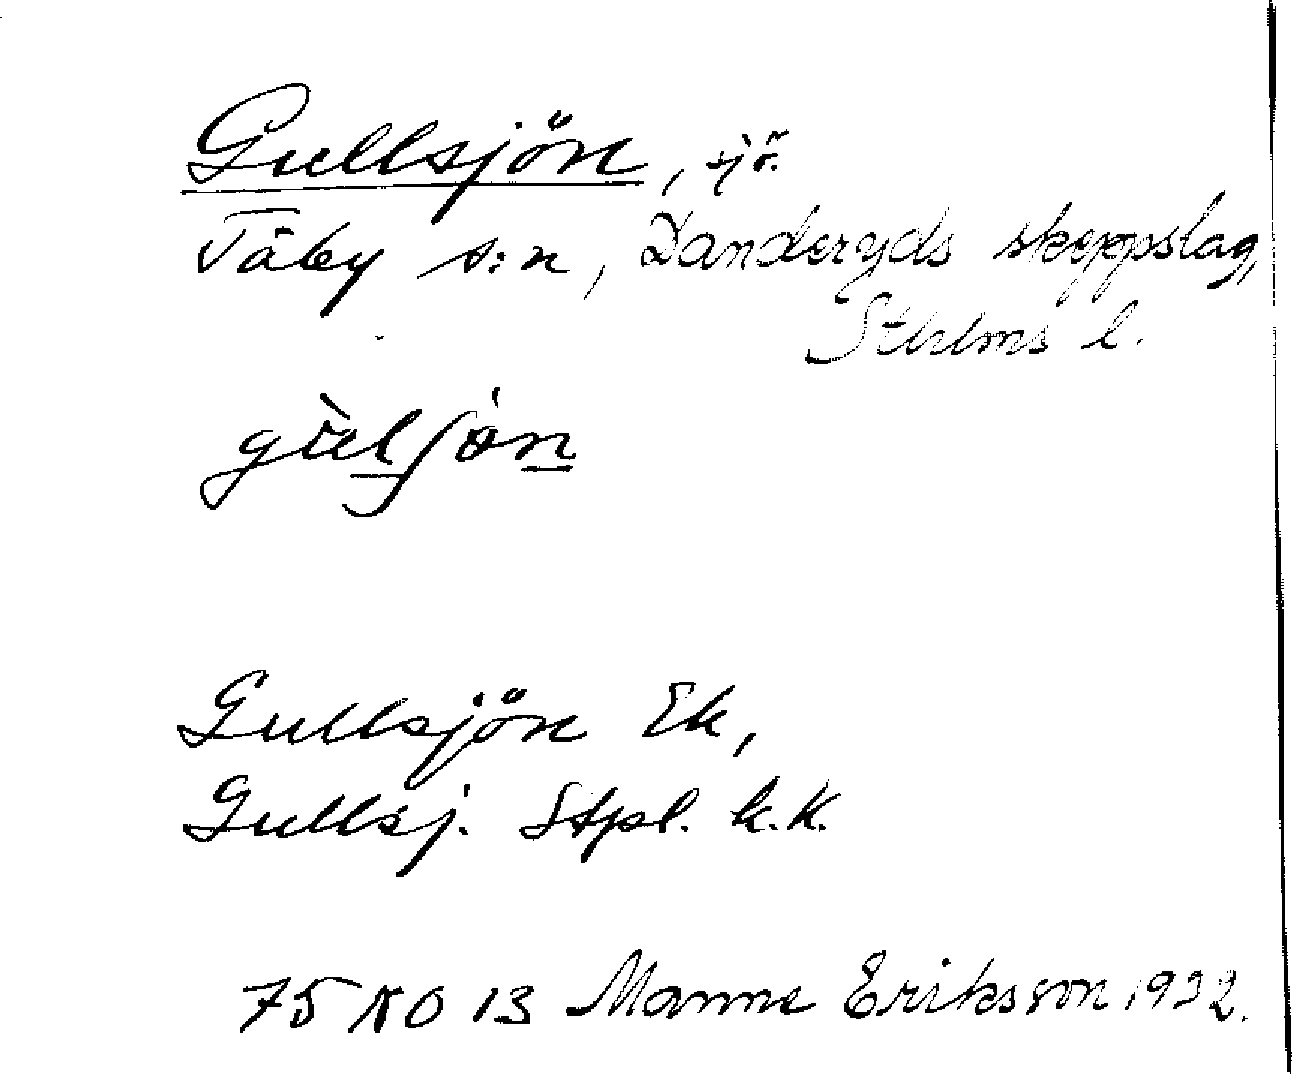 Gullsjön, sjö.
Täby s:n, Danderyds skeppslag,
Sthlms l.
gùlʃön
Gullsjön Ek,
Gullsj. Stpl. k.k.
75 NO 13 Manne Eriksson 1932.